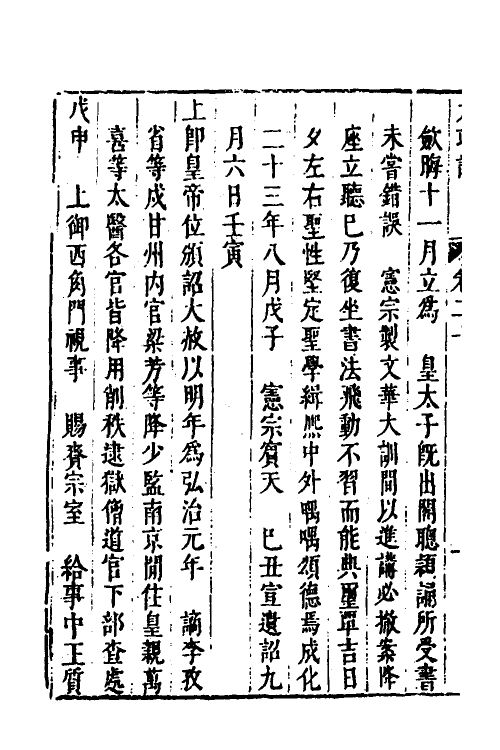 斂晦十一月立爲　皇太子旣出閣聽覲誦所受書
未嘗錯誤　憲宗製文華大訓間以進講必撤案降
座立聽已乃復坐書法飛動不習而能典璽覃吉日
夕左右聖性堅定聖學緝熙中外喁喁頌德焉成化
二十三年八月戊子　憲宗賔天　巳丑宣遺詔九
月六日壬寅
上卽皇帝位頒詔大赦以明年爲弘治元年　謫李孜
省等戍甘州内官梁芳等降少監南京閒住皇親萬
喜等太醫各官皆降用削秩逮獄僧道官下部查處
戊申　上御西角門視事　賜賚宗室　給事中王質